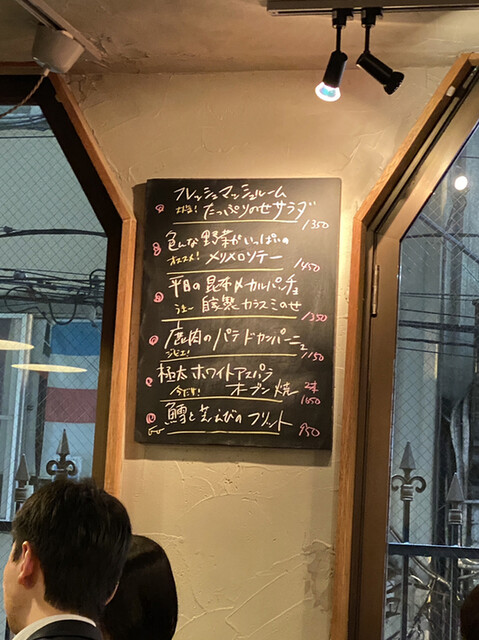 フレッシュマッシュルーム
たっぷりのせサラダ
1350
色んな野菜がいっぱいの
オススメ! メリメロソテー
1450
平目の昆布〆カルパッチョ
自家製カラスミのせ
1350
鹿肉のパテドカンパーニュ
ジビエ! 1150
極太ホワイトアスパラ
今だけ! オーブン焼 2本
1650
鱈と芝えびのフリット
950